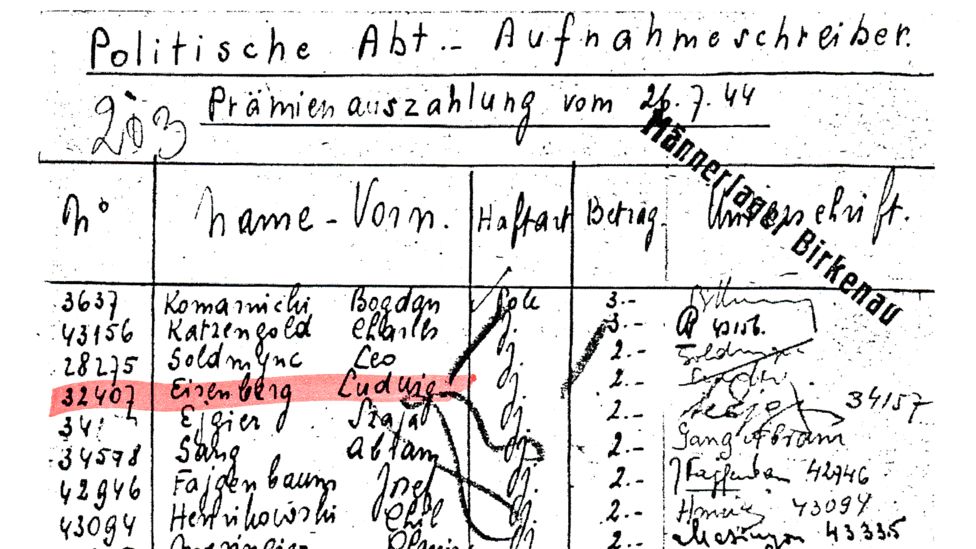 Politische Abt.- Aufnahmeschreiber.
203 Prämienauszahlung vom 26.7.44
Männerlager Birkenau
N° Name-Vorn. Haftart Betrag. Unterschrift.
3637 Komarnicki Bogdan Pole 3.-
43156 Katzengold Charles J. 3.- 43156.
28275 Goldmync Leo J. 2.-
32407 Eisenberg Ludwig J. 2.-
Ejgier Szaja 2.- 34157
34578 Gang Abram J. 2.- Gang Abram
42946 Fajgenbaum Josef J. 2.- 42946
43094 Henrikowski Chil J. 2.- 43094
2.- 43335